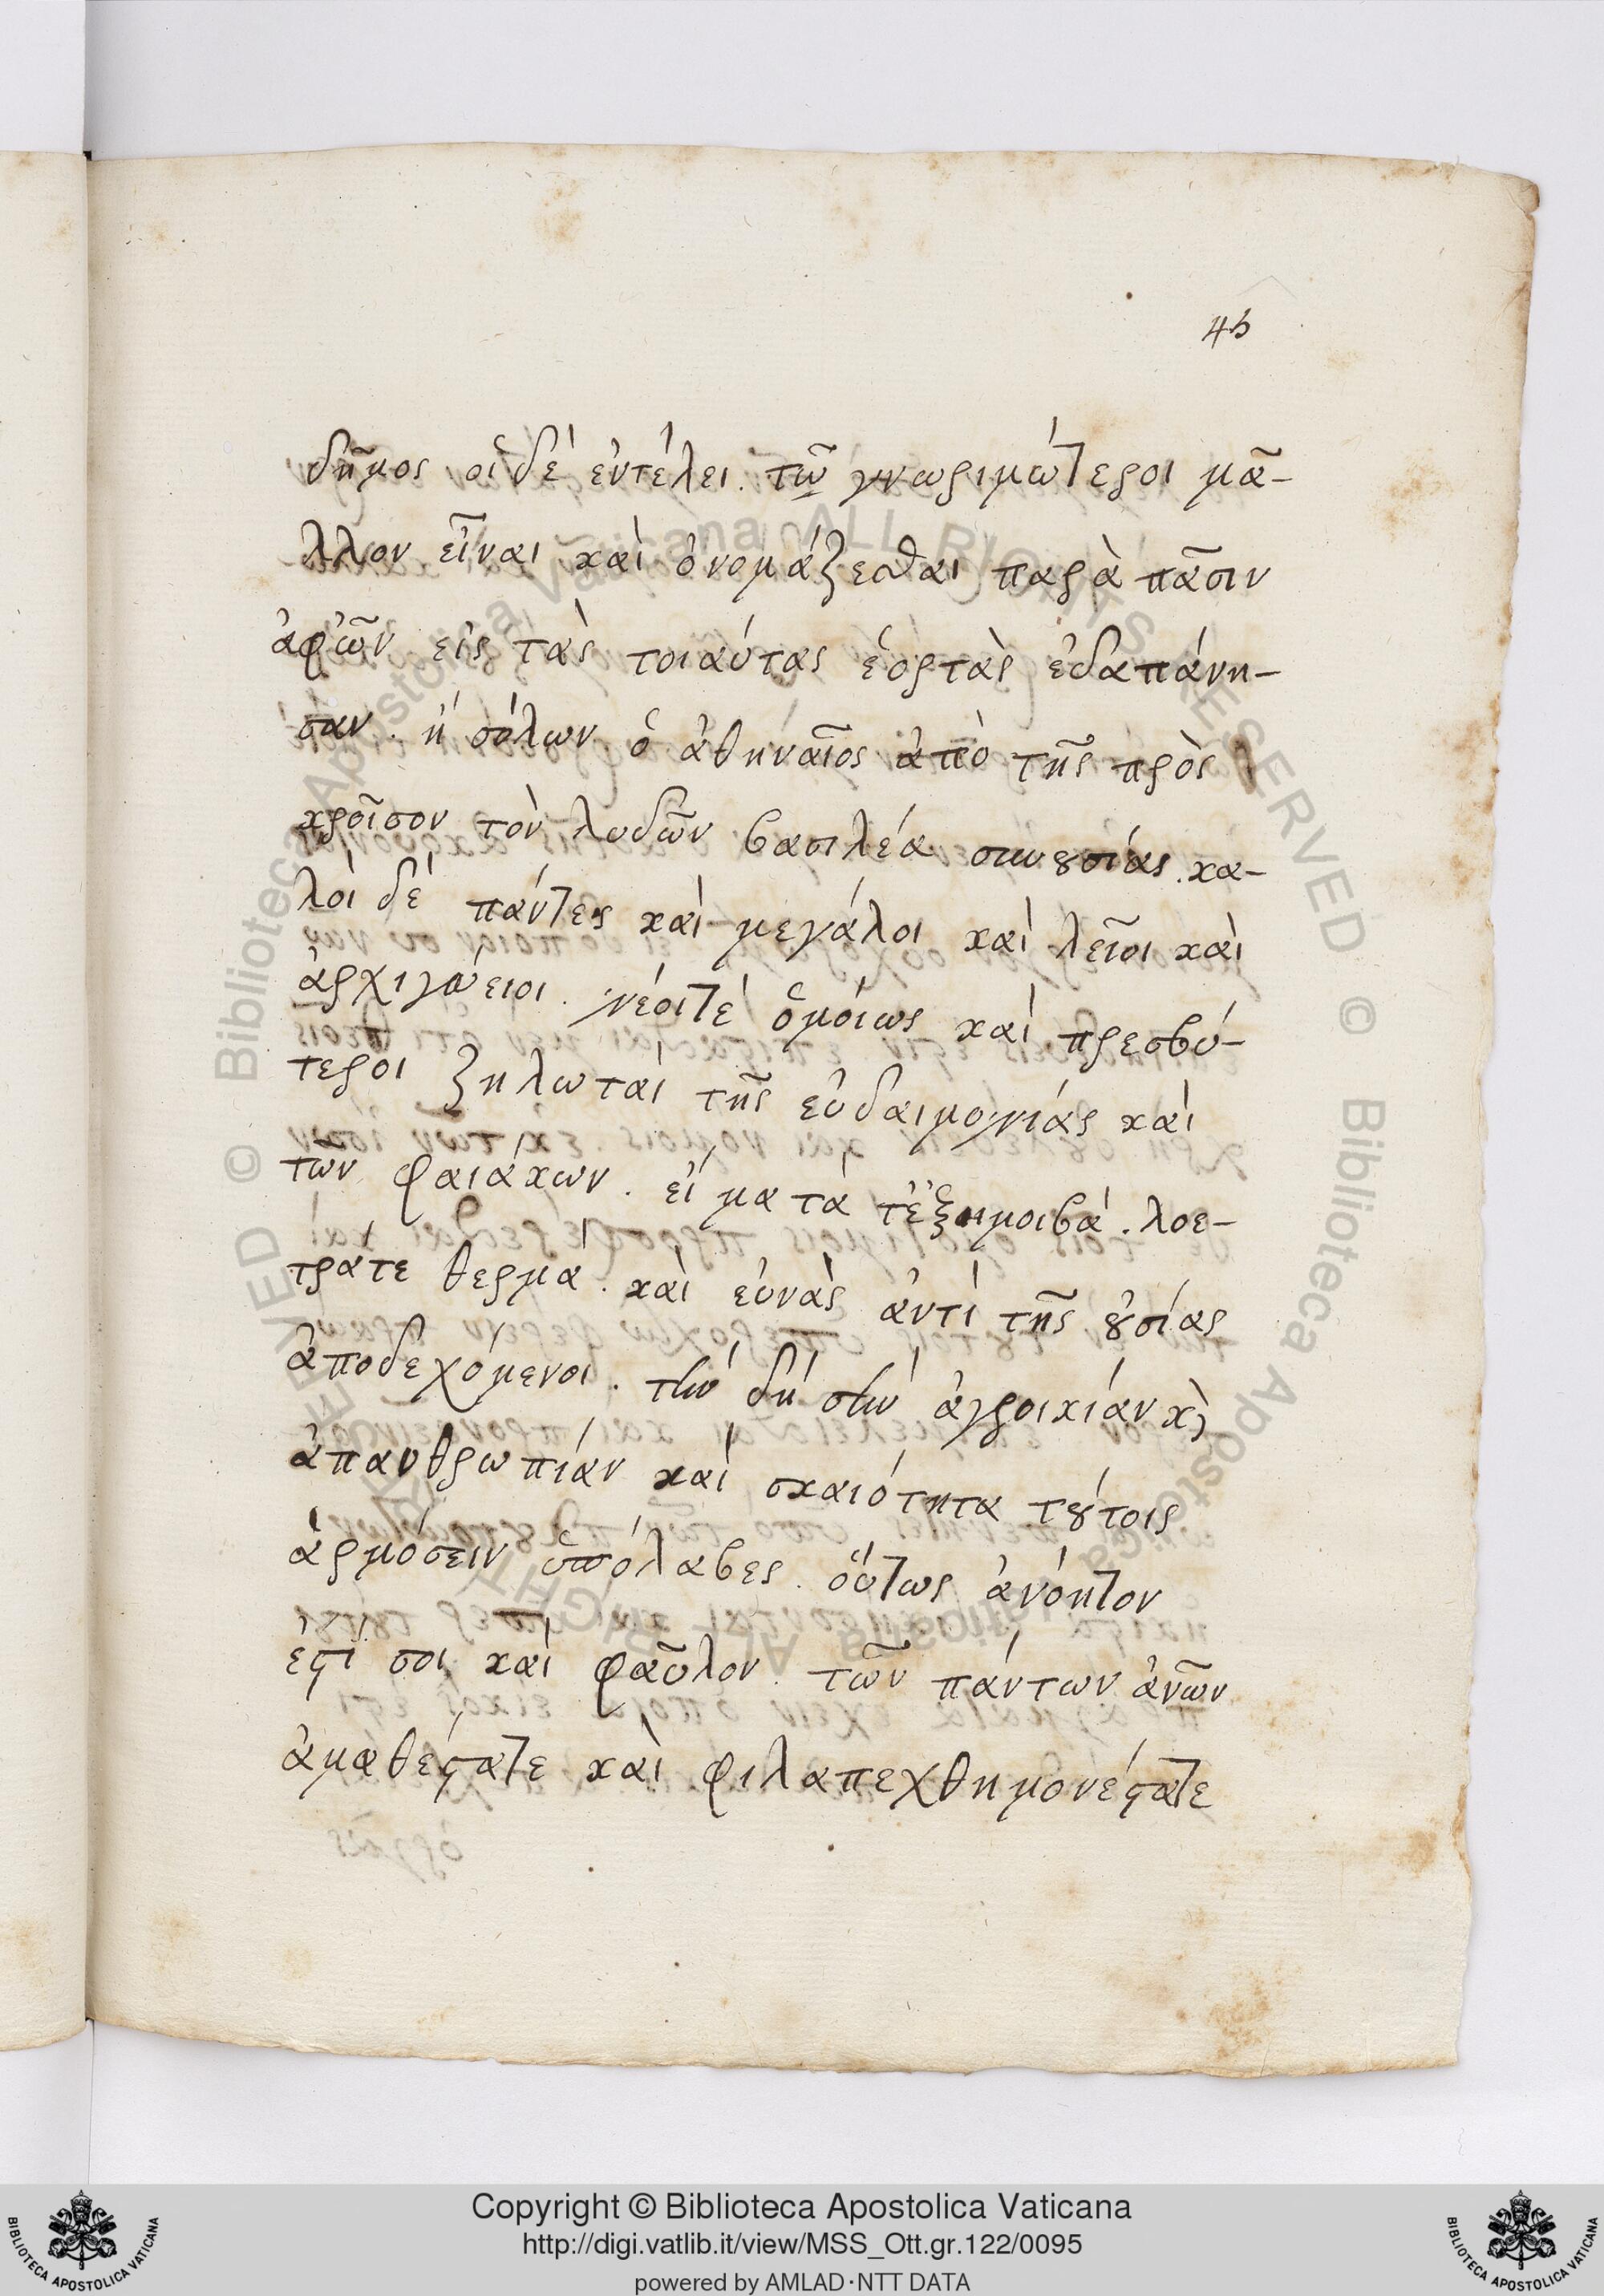 45
δῆμος οἱ δὲ ἐντέλει. τῶ γνωριμώτεροι μᾶ-
λλον εἶναι καὶ ὀνομάζεσθαι παρὰ πᾶσιν
ἀφ'ὧν εἰς τὰς τοιαύτας ἑορτὰς ἐδαπάνη-
σαν. ἢ σόλων ὁ ἀθηναῖος ἀπὸ τῆς πρὸς
κροῖσον τὸν λυδῶν βασιλέα συνουσίας. κα-
λοὶ δὲ πάντες καὶ μεγάλοι καὶ λεῖοι καὶ
ἀρχιγένειοι. νέοιτε ὁμοίως καὶ πρεσβύ-
τεροι ζηλωταὶ τῆς εὐδαιμονίας καὶ
τῶν φαιάκων. εἵματά τἐξημοιβά. λοε-
τράτε θερμά. καὶ εὐνὰς ἀντὶ τῆς οὐσίας
ἀποδεχόμενοι. τὴν δὴ σὴν ἀγροικίαν κὶ
ἀπανθρωπίαν καὶ σκαιότητα τούτοις
ἁρμόσειν ὑπόλαβες. οὕτως ἀνόητον
ἐστί σοι καὶ φαῦλον. τῶν πάντων ἀνῶν
ἀμαθέστατε καὶ φιλαπεχθημονέστατε
Copyright © Biblioteca Apostolica Vaticana
http://digi.vatlib.it/view/MSS_Ott.gr.122/0095
powered by AMLAD·NTT DATA
BIBLIOTECA APOSTOLICA VATICANA
BIBLIOTECA APOSTOLICA VATICANA